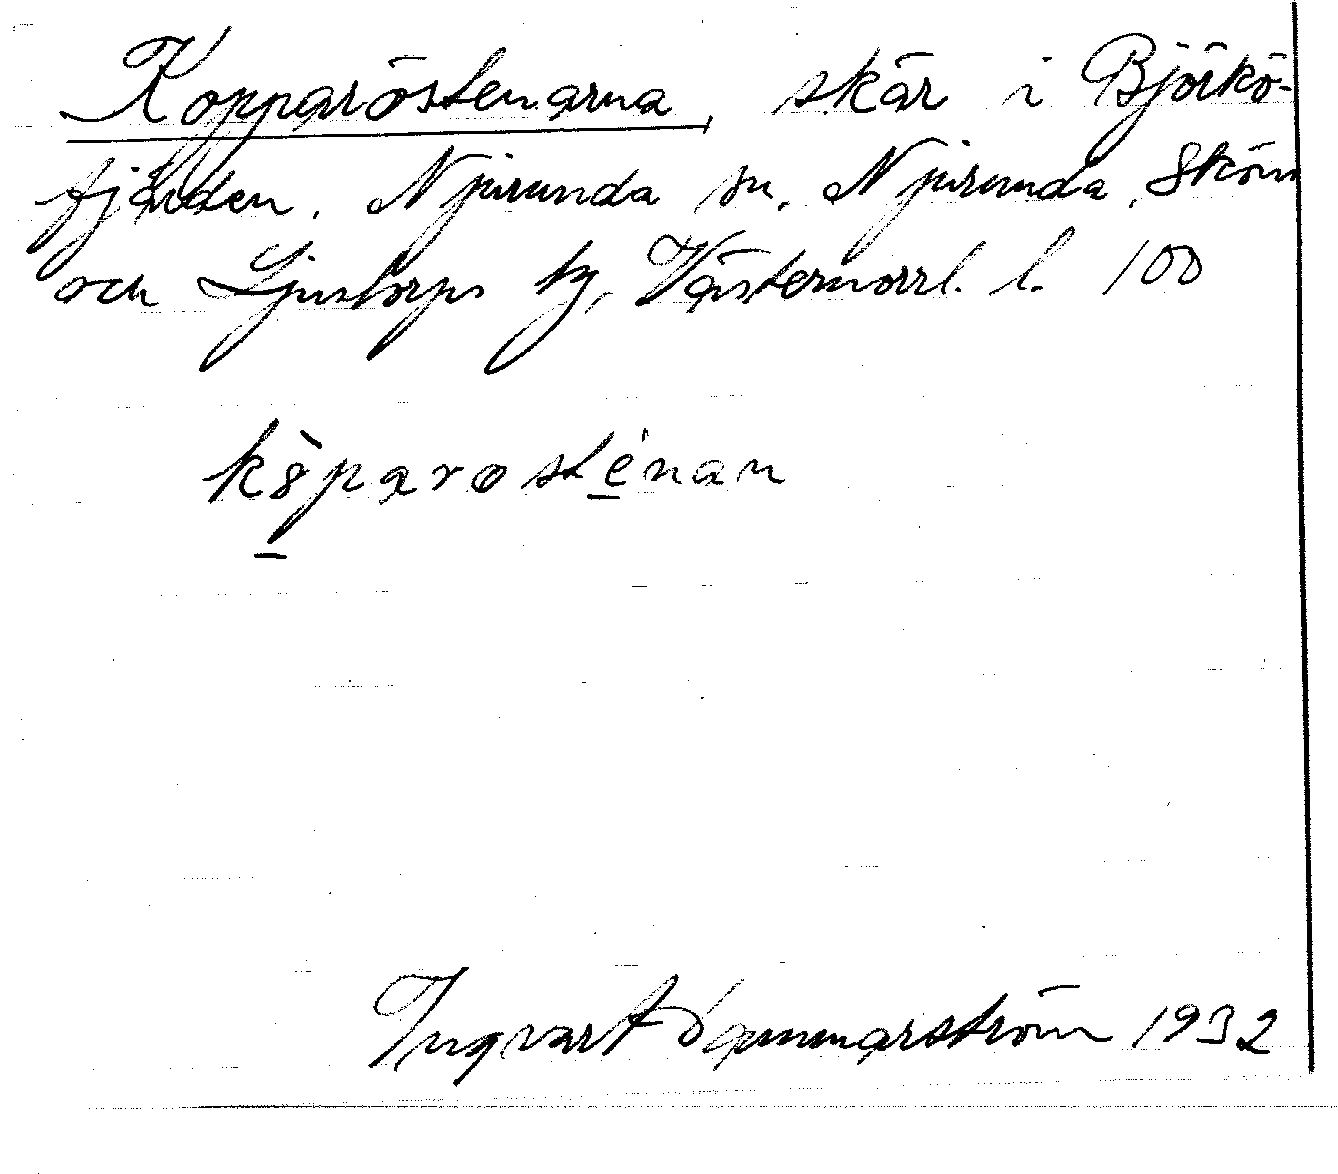 Kopparöstenarna, skär i Björkö-
fjärden. Njurunda sn, Njurunda, Sköns
och Ljustorps tg, Västernorrl. l. 100
köparosténan
Ingvart Hammarström 1932